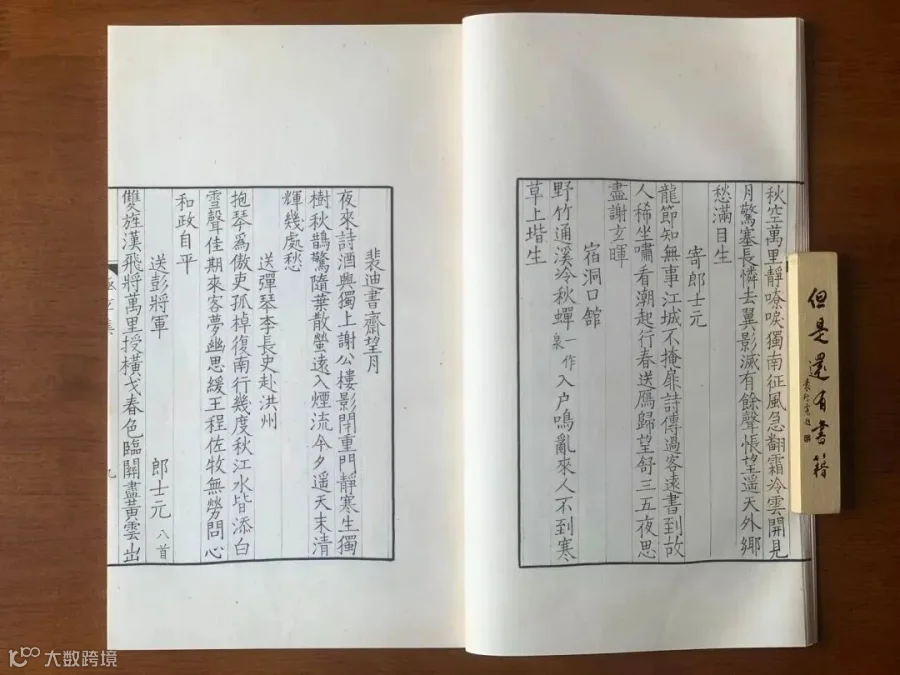 秋空萬里靜嘹唳獨南征風急翻霜冷雲開見
月驚塞長憐去翼影滅有餘聲悵望遥天外鄉
愁滿目生
寄郎士元
龍節知無事江城不掩扉詩傳過客遠書到故
人稀坐嘯看潮起行春送鴈歸望舒三五夜思
盡謝玄暉
宿洞口舘
野竹通溪冷秋蟬一作泉入户鳴亂來人不到寒
草上堦生
裴迪書齋望月
夜來詩酒興獨上謝公樓影閉重門靜寒生獨
樹秋鵲驚隨葉散螢遠入煙流今夕遥天末清
輝幾處愁
送彈琴李長史赴洪州
抱琴爲傲吏孤棹復南行幾度秋江水皆添白
雪聲佳期來客夢幽思緩王程佐牧無勞問心
和政自平
送彭將軍 郎士元 八首
雙旌漢飛將萬里授橫戈春色臨關盡黃雲出
九
但是還有書籍
大数跨境